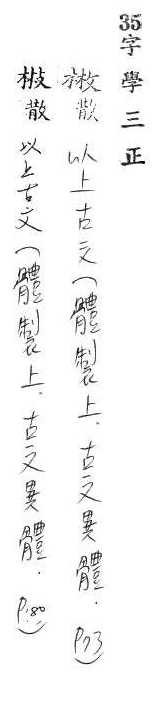 35字學三正
㪚散 以上古文(體製上.古文異體.P.73)
㪚散 以上古文(體製上.古文異體.P.80)